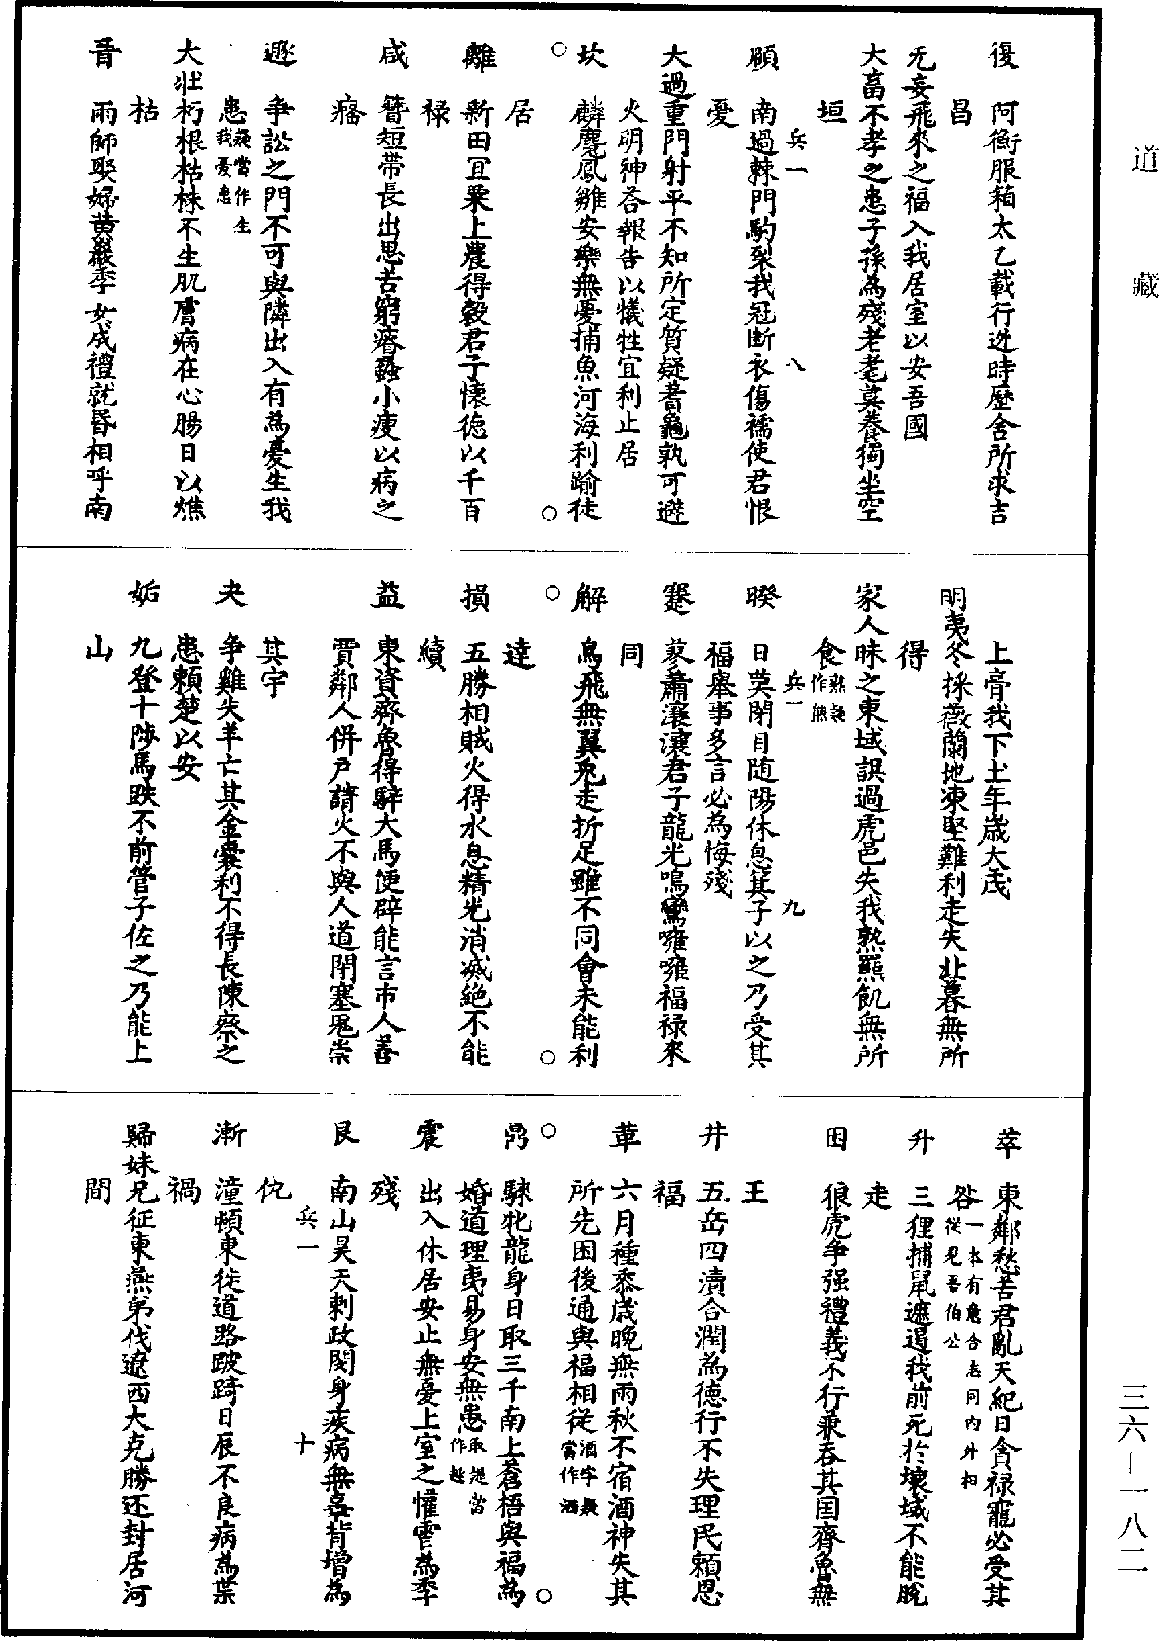 道藏
三六—一八二
復　阿衡服箱太乙載行逃時歷舍所求吉
昌
无妄飛來之福入我居室以安吾國
大畜不孝之患子孫為殘老耄莫養獨坐空
垣
兵一　八
頤　南過棘門駒裂我冠斷衣傷襦使君恨
憂
大過重門射平不知所定質疑蓍龜孰可避
火明神荅報告以犧牲宜利止居
坎　麟麑鳳雛安樂無憂捕魚河海利踰徒
居
離　新田宜粟上農得穀君子懷德以千百
祿
咸　簪短帶長出思苦窮瘠蠡小瘦以病之
癃
遯　爭訟之門不可與隣出入有為憂生我
患疑當作生我憂患
大壯朽根枯株不生肌膚病在心腸日以燋
枯
晉　雨師娶婦黃巖季女成禮就昏相呼南
上膏我下土年歲大茂
明夷冬採薇蘭地凍堅難利走失北暮無所
得
家人昧之東域誤過虎邑失我熟羆飢無所
食熟疑作無
兵一　九
睽　日莫閉目随陽休息箕子以之乃受其
福舉事多言必為悔殘
蹇　蓼蕭瀼瀼君子龍光鳴鸞噰噰福祿來
同
解　鳥飛無翼兎走折足雖不同會未能利
達
損　五勝相賊火得水息精光消滅絕不能
續
益　東資齊魯得駢大馬便辟能言市人善
賈鄰人併戶請火不與人道閉塞鬼崇
其宇
夬　爭雞失羊亡其金囊利不得長陳蔡之
患賴楚以安
姤　九登十陟馬跌不前管子佐之乃能上
山
萃　東鄰愁苦君亂天紀日貪祿寵必受其
咎一本有意合志同內外相從見吾伯公
升　三狸捕鼠遮遏我前死於壞域不能脫
走
困　狼虎爭强禮義不行兼吞其國齊魯無
王
井　五岳四瀆合潤為德行不失理民賴恩
福
革　六月種黍歲晚無雨秋不宿酒神失其
所先困後通與福相從酒字疑當作酒
鼎　騋牝龍身日取三千南上蒼梧與福為
婚道理夷易身安無患取疑當作趍
震　出入休居安止無憂上室之懽雷為季
殘
艮　南山昊天刺政閔身疾病無辜背增為
仇
兵一　十
漸　潼頓東徙道路跛踦日辰不良病為祟
禍
歸妹兄征東燕弟伐遼西大克勝还封居河
間